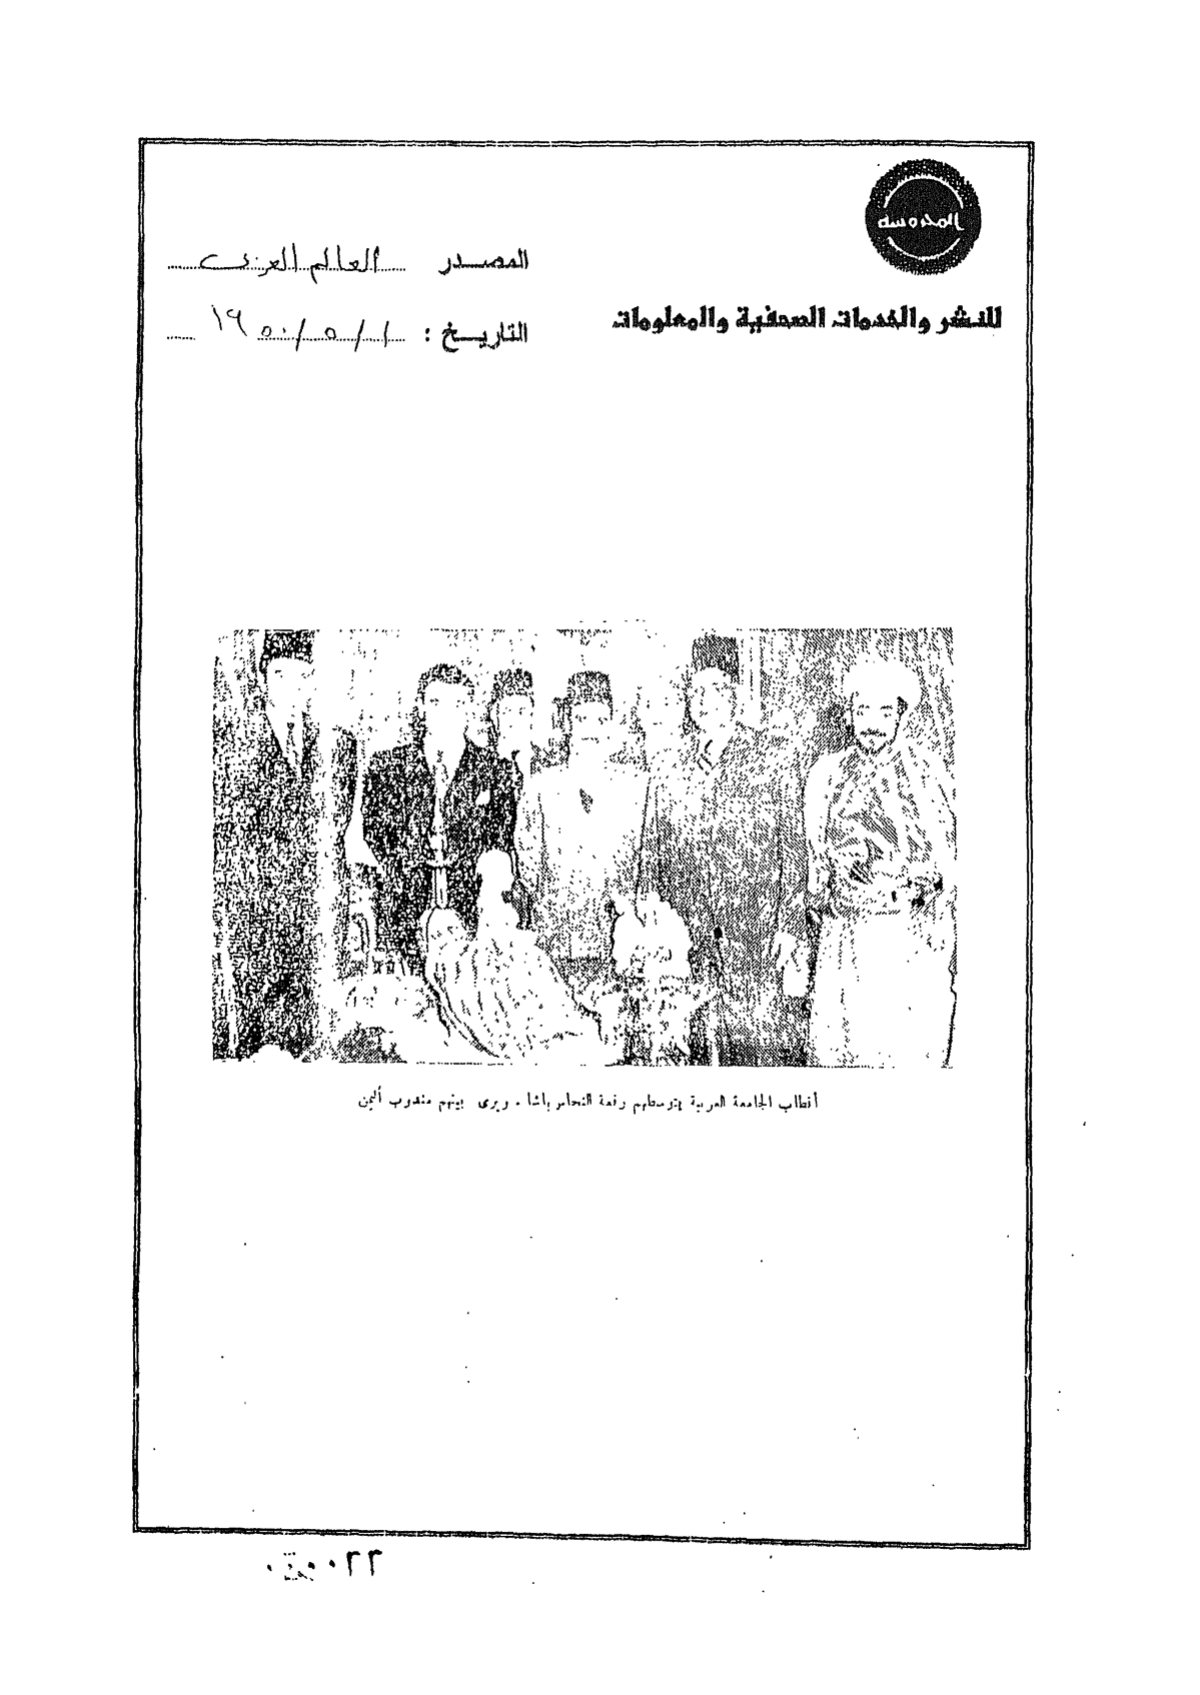 المحروسة
للنشر والخدمات الصحفية والمعلومات
المصدر العالم العربى
التاريخ : ١ / ٥ / ١٩٥٠
أقطاب الجامعة العربية يتوسطهم رفعة النحاس باشا . ويرى بينهم مندوب اليمن